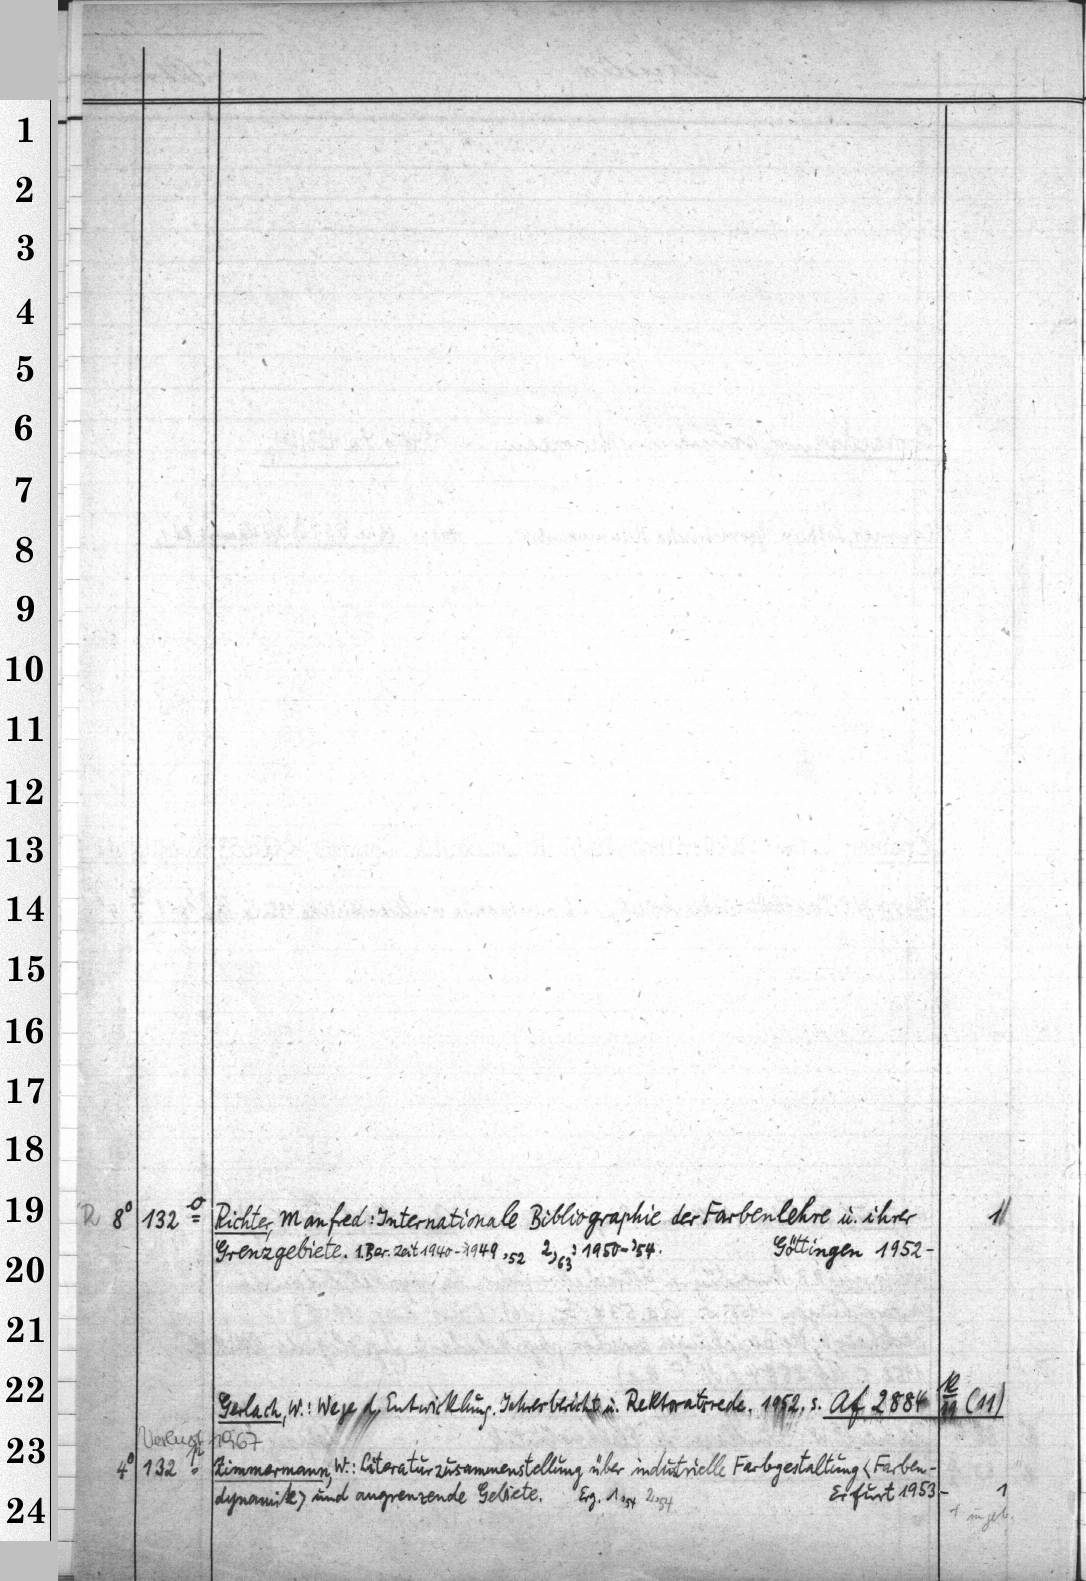 1
2
3
4
5
6
7
8
9
10
11
12
13
14
15
16
17
18
19
R 8⁰ 132 Richter, Manfred: Internationale Bibliographie der Farbenlehre u. ihrer 1
Grenzgebiete. 1. Ber. Zeit 1940-1949, 52 2, 63: 1950-'54. Göttingen 1952-
20
21
22
Gerlach, W.: Wege d. Entwicklung. Jahresbericht u. Rektoratsrede. 1952. s. Af 2884 (11)
Verlust 1967
23
4⁰ 132 Zimmermann, W.: Literaturzusammenstellung über industrielle Farbgestaltung <Farben-
dynamik> und angrenzende Gebiete. Erg. 1, 54 2, 54 Erfurt 1953- 1
24